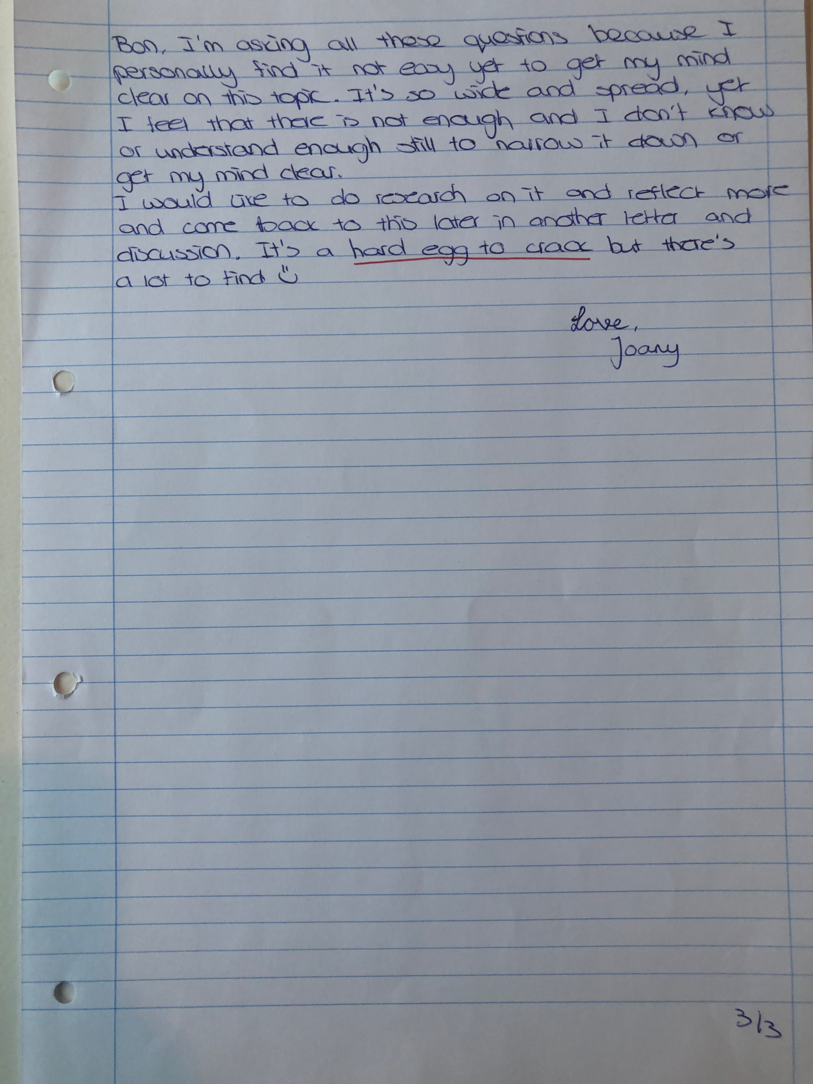 Bon, I'm asking all these questions because I
personally find it not easy yet to get my mind
clear on this topic. It's so wide and spread, yet
I feel that there is not enough and I don't know
or understand enough still to narrow it down or
get my mind clear.
I would like to do research on it and reflect more
and come back to this later in another letter and
discussion. It's a hard egg to crack but there's
a lot to find ☺
Love,
Joany
3/3